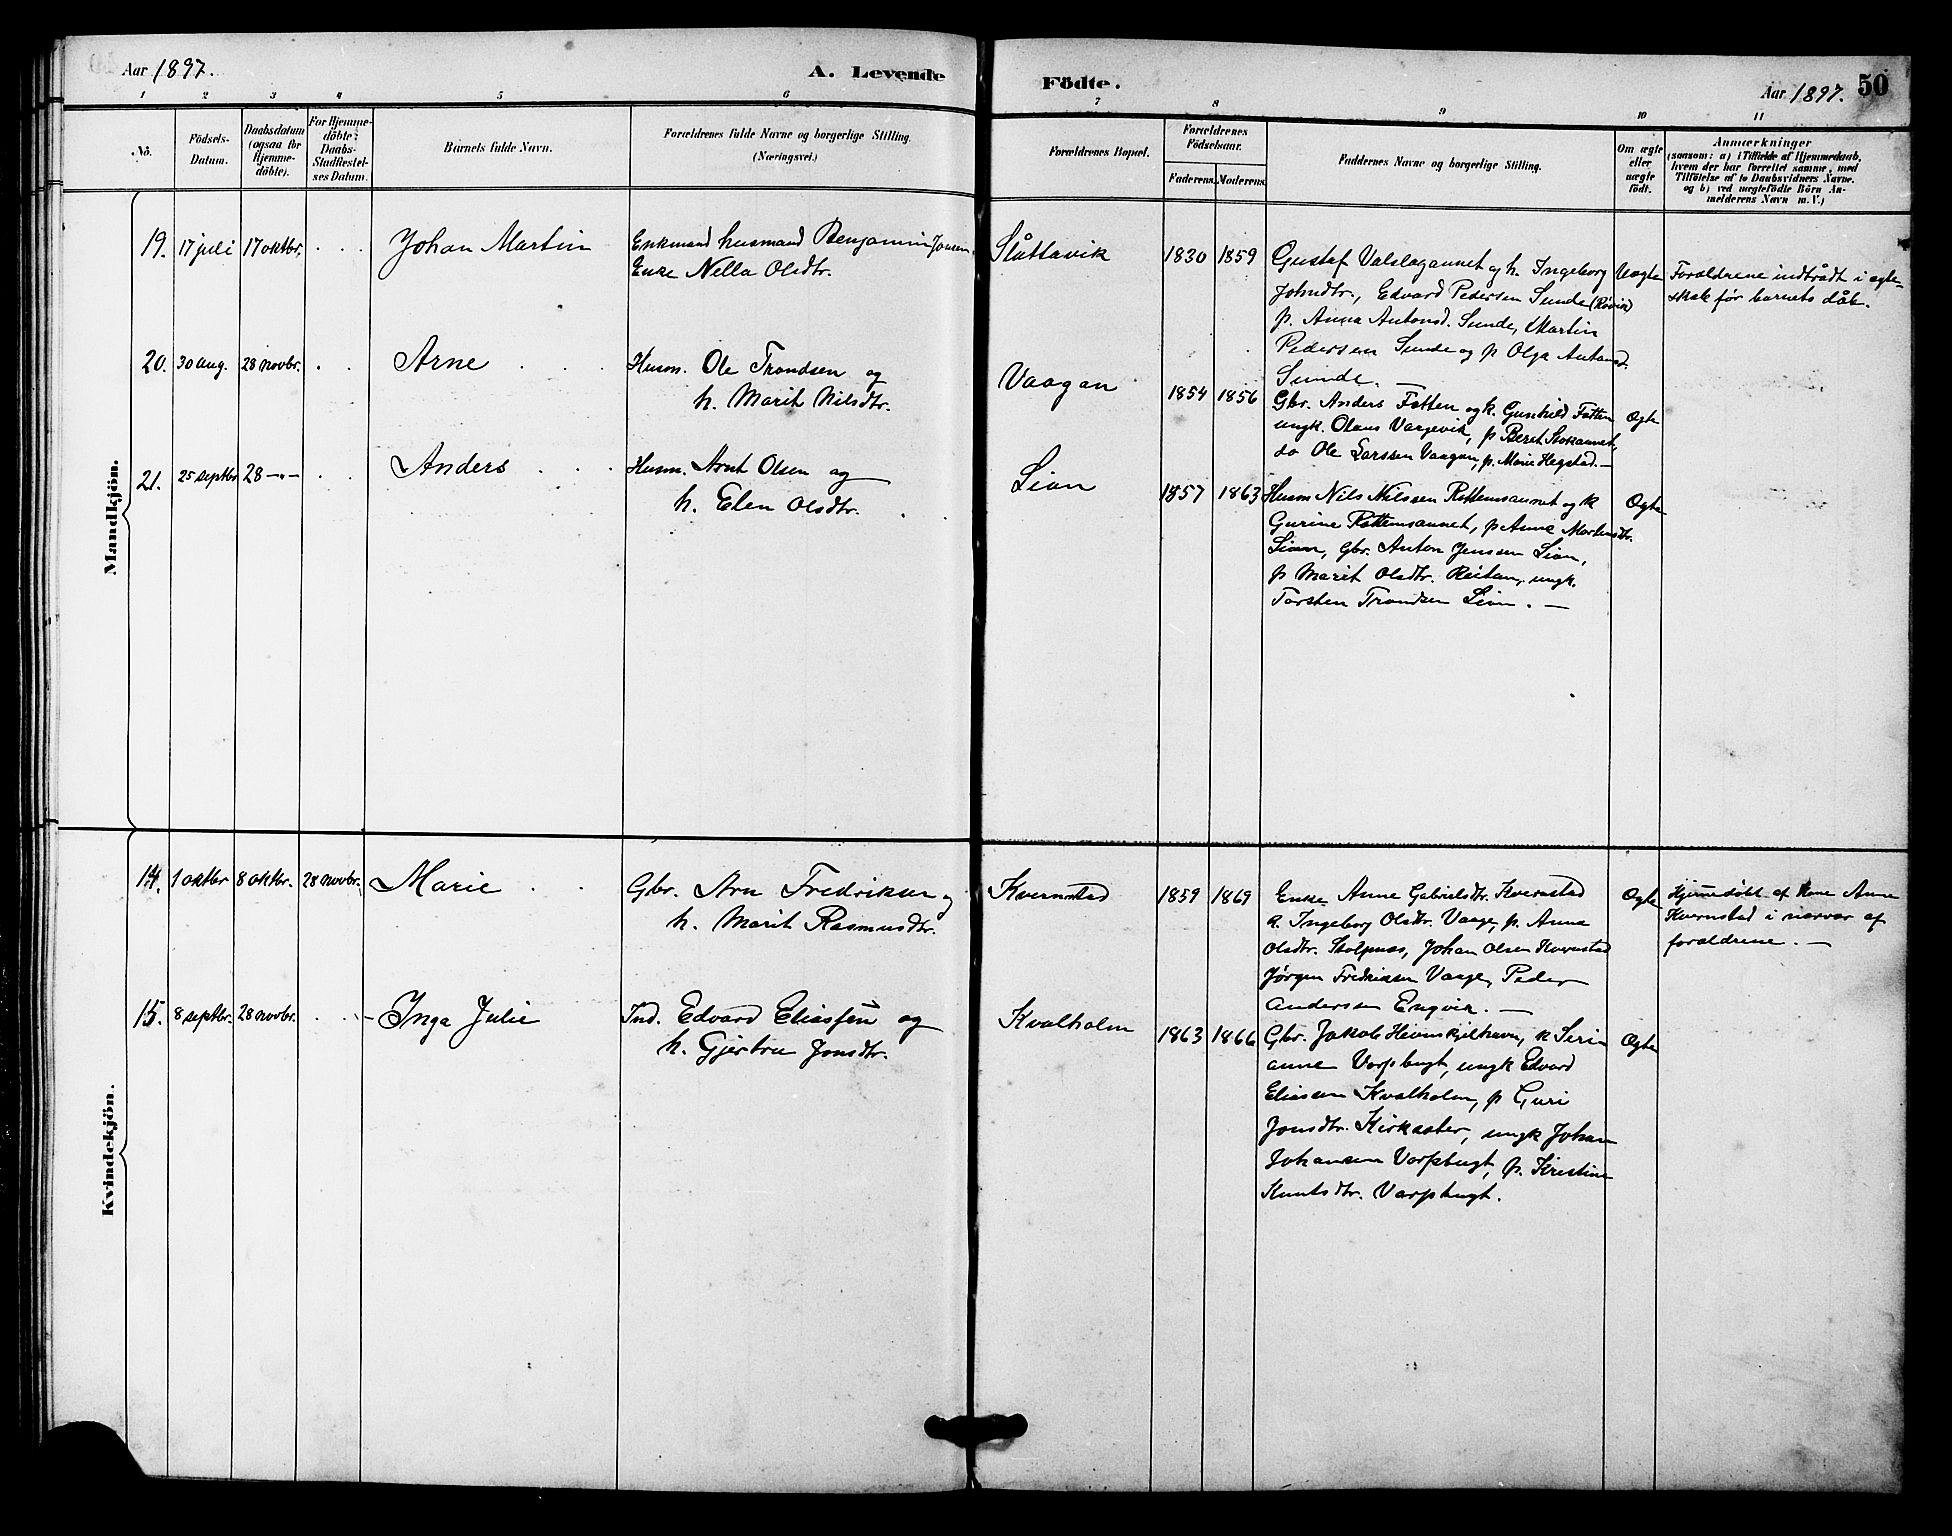 Aar 1897.
A. Levende
Födte.
Aar 1897.
50
1
2
3
4
5
6
7
8
9
10
11
No.
Födsels-
Datum.
Daabsdatum
(ogsaa for
Hjemme-
döbte).
For Hjemme-
döbte:
Daabs-
Stadfæstel-
ses Datum.
Barnets fulde Navn.
Forældrenes fulde Navne og borgerlige Stilling.
(Næringsvei.)
Forældrenes Bopæl.
Forældrenes
Födselsaar.
Faderens.
Moderens.
Faddernes Navne og borgerlige Stilling.
Om ægte
eller
uægte
födt.
Anmærkninger
(saasom: a) i Tilfælde af Hjemmedaab,
hvem der har forrettet samme, med
Tilföielse af to Daabsvidners Navne.
og b) ved uægtefödte Börn An-
melderens Navn m. V.)
Mandkjön.
19.
17 juli
17 oktbr.
Johan Martin
Enkmand husmand Benjamin Jonsen,
Enke Nella Olsdtr.
Slåttavik
1830
1859
Gustaf Valslagannet og h. Ingeborg
Johndtr., Edvard Pedersen Sunde
p. Anna Antonsd. Sunde, Martin
Pedersen Sunde og p Olga Antonsd.
Sunde. —
Uægte
Forældrene indtrådt i ægte-
skab før barnets dåb.
20.
30 aug.
28 novbr.
Arne
Husm. Ole Trondsen og
h. Marit Nilsdtr.
Vaagan
1854
1856
Gbr. Anders Fætten og k. Gunhild Fætten
ungk. Olaus Vaagevik, p Beret
do Ole Larssen Vaagan, p. Marie Hegstad. —
Ægte
21.
25 septbr
28 —"—
Anders
Husm. Arnt Olsen og
h. Elen Olsdtr.
Lian
1857
1863
Husm Nils Nilssen Røttemsannet og k
Gurine Røttemsannet, p Anna Martinsdtr.
Lian, Gbr. Anton Jenssen Lian,
p Marit Olsdtr. Reitan, ungk.
Torsten Trondsen Lian. —
Ægte
Kvindekjön.
14.
1 oktbr
8 oktbr.
28 novbr.
Marie
Gbr. Arn Fredriksen og
h. Marit Rasmusdtr.
Kvernstad
1859
1869
Enke Anne Gabrielsdtr. Kvernstad
k. Ingeborg Olsdtr. Vaage, p. Anna
Olsdtr. Skolpnes, Johan Olsen Kvernstad
Jørgen Fredriksen Vaage, Peder
Anderssen Engvik. —
Ægte
Hjemmedøbt af kone Anne
Kvernstad i nærvær af
forældrene. —
15.
8 septbr.
28 novbr.
Inga Julie
Ind. Edvard Eliassen og
h. Gjertru Jonsdtr.
Kvalholm
1863
1866
Gbr. Jakob Heimskjelhavn, k Seri-
anne Varpbugt, ungk Edvard
Eliassen Kvalholm, p Guri
Jonsdtr. Kirksæter, ungk Johan
Johansen Varpbugt, p. Kirestine
Knutsdtr. Varpbugt.
Ægte